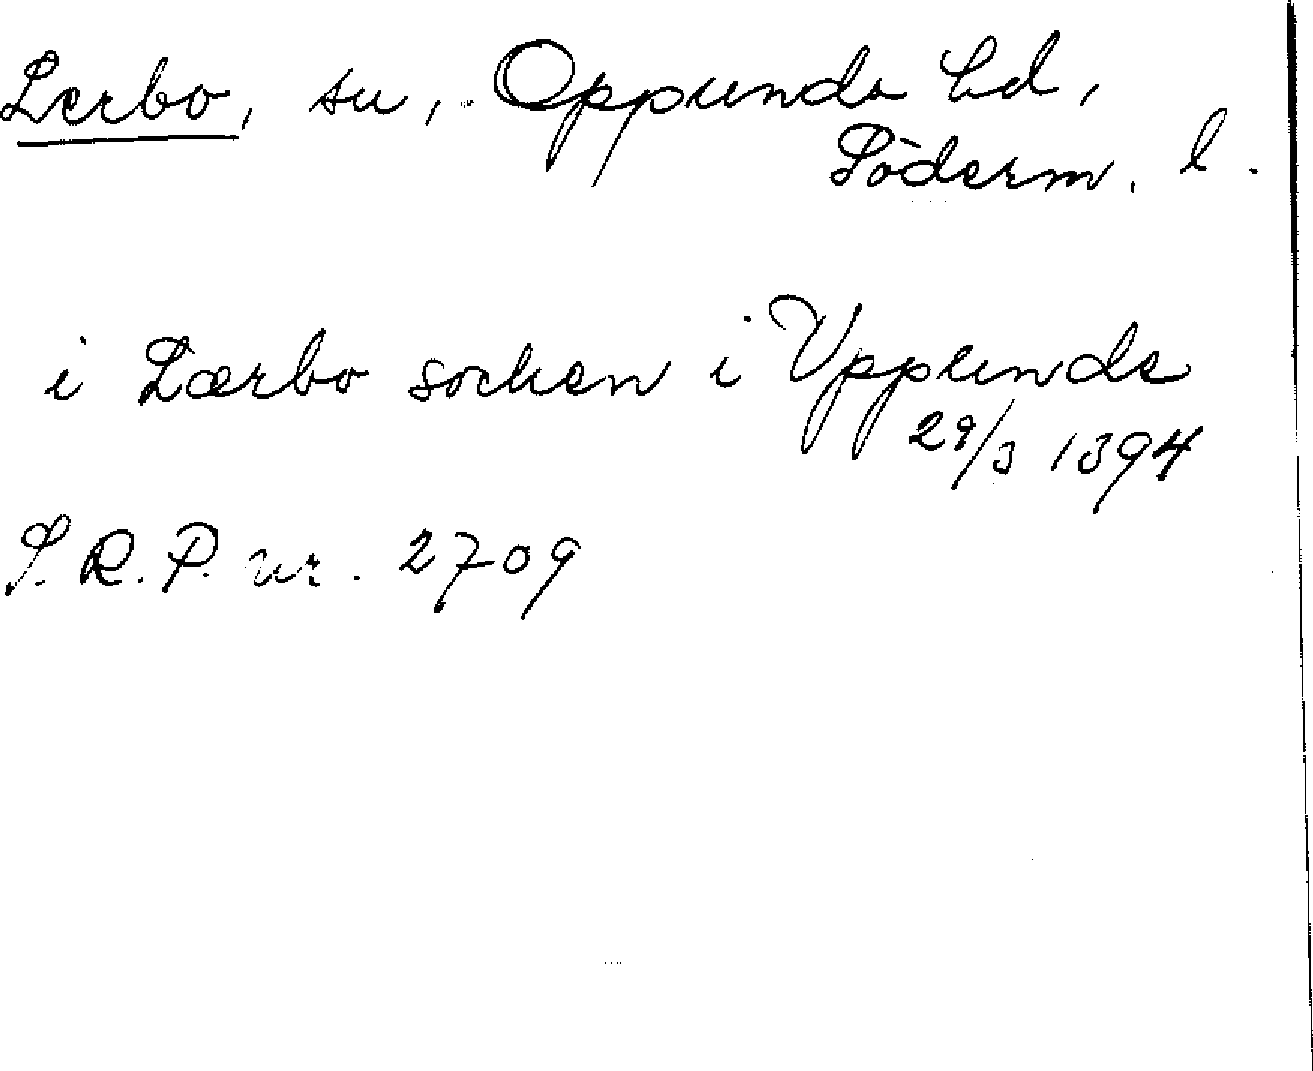 Lerbo, sn, Oppunda hd,
Söderm. l.
i Lærbo socken i Vppunde
29/3 1394
S.R.P. nr. 2709